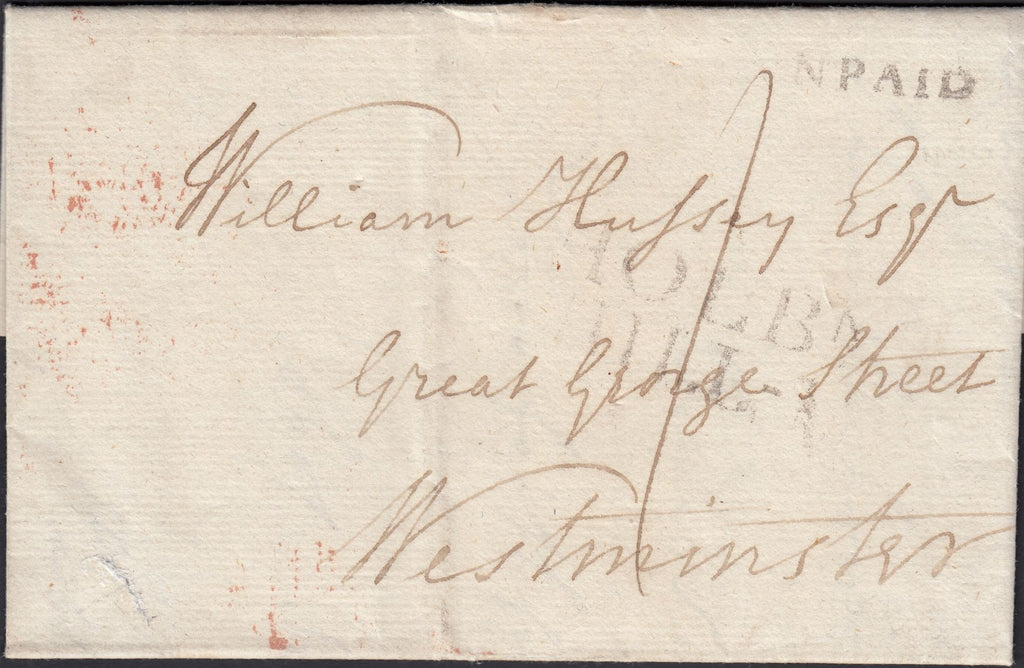 NPAID
William Hussey Esqr
HOLBN
HILL 1
Great George Street
Westminster